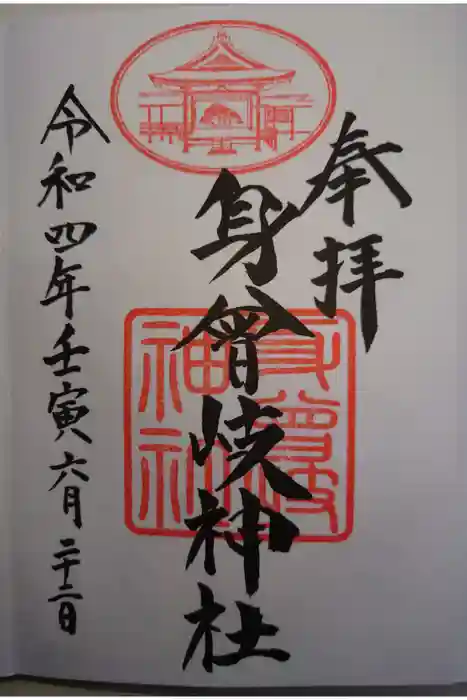 奉拝
身曾岐神社
令和四年壬寅六月二十二日
身曾岐神社